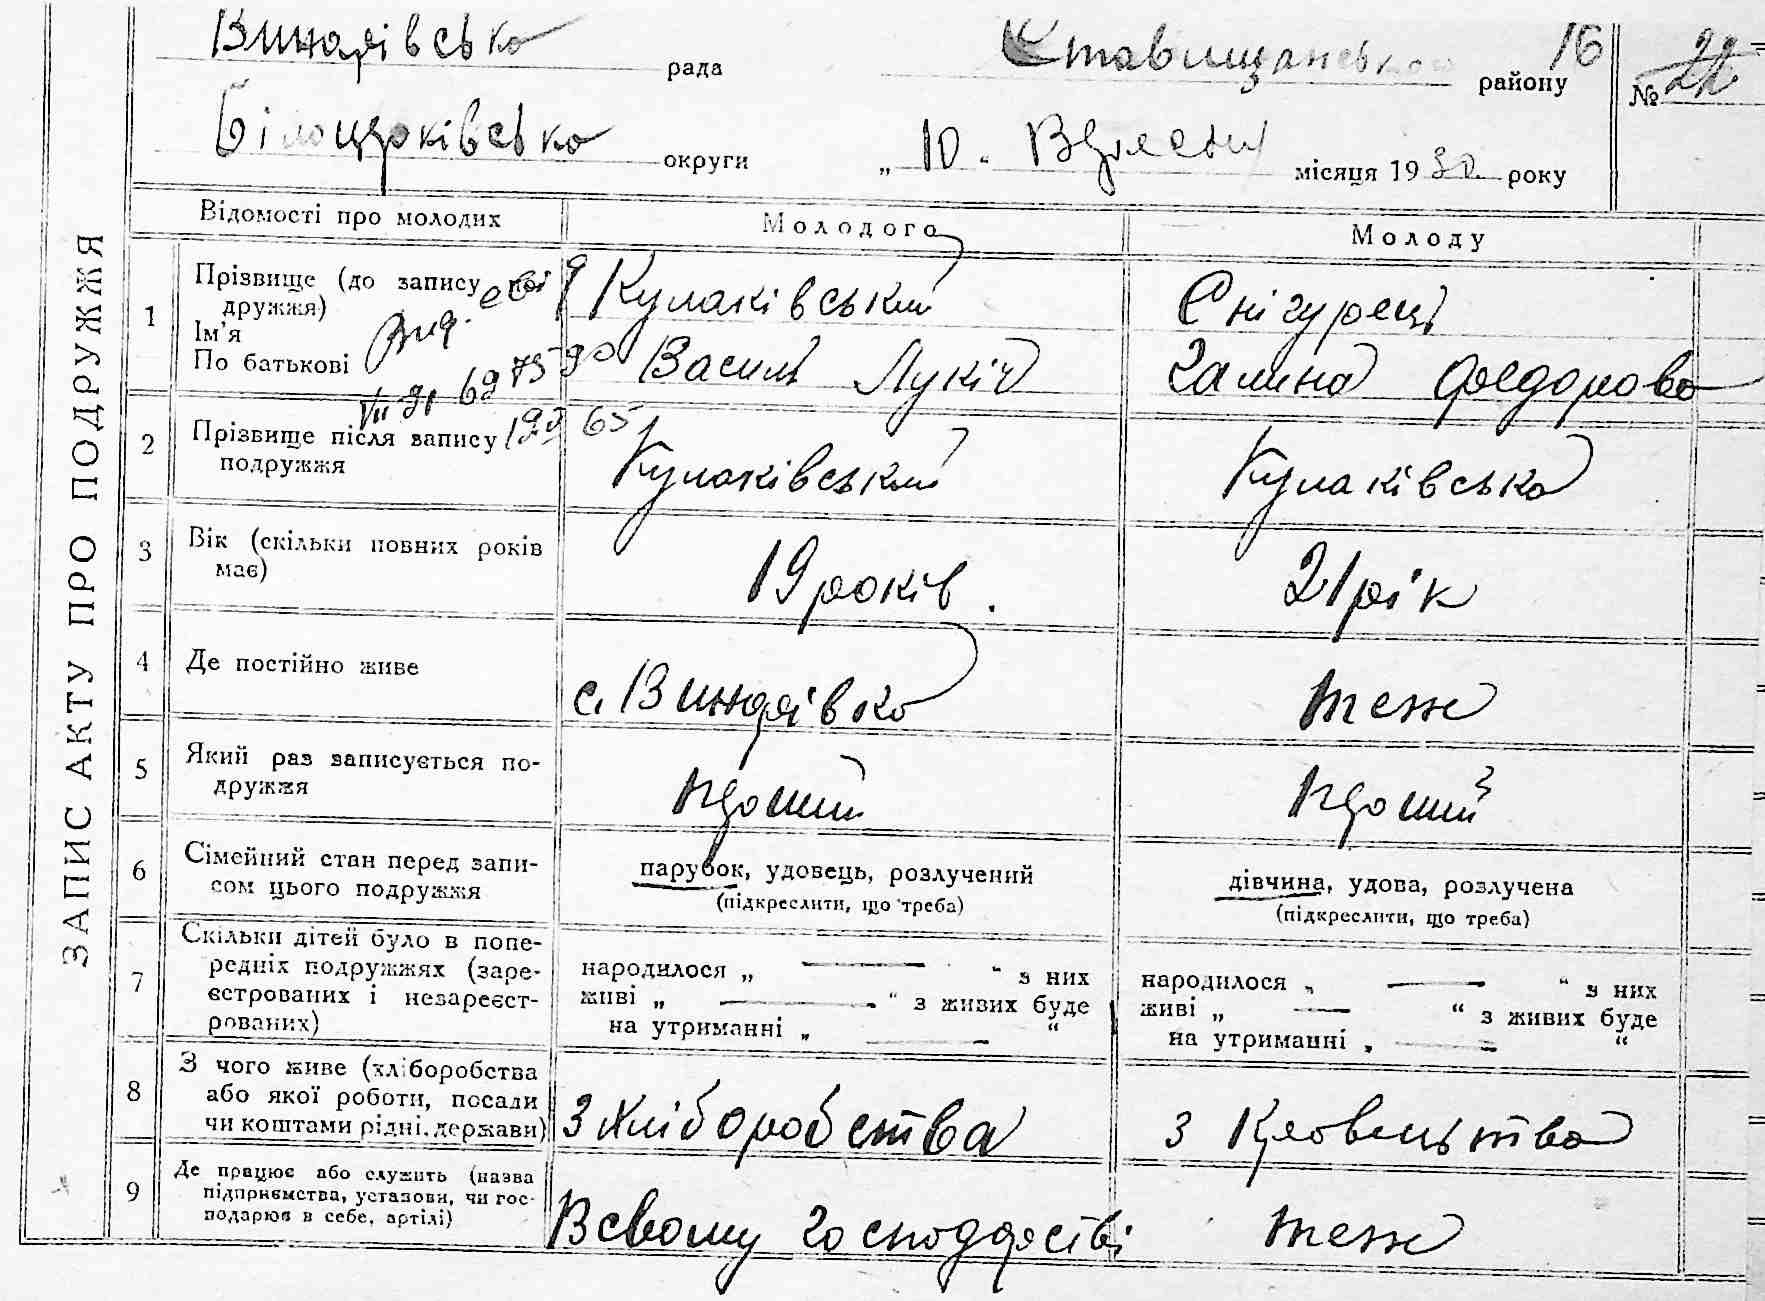 ЗАПИС АКТУ ПРО ПОДРУЖЖЯ
Винарівсько рада Ставищансько району 16 № 22
Білоцерківсько округи „ 10 “ Вересня місяця 1930 року
Відомості про молодих Молодого Молоду
1 Прізвище (до запису по-
дружжя)
Ім’я
По батькові
Кулаківський
Василь Лукіч
Снігурець
Галина Федорова
Вид.
2 Прізвище після запису
подружжя
Кулаківський Кулаківська
3 Вік (скільки повних років
має)
19 років. 21 рік
4 Де постійно живе с. Винарівка теж
5 Який раз записується по-
дружжя
перший перший
6 Сімейний стан перед запи-
сом цього подружжя
парубок, удовець, розлучений
(підкреслити, що треба)
дівчина, удова, розлучена
(підкреслити, що треба)
7 Скільки дітей було в попе-
редніх подружжях (заре-
єстрованих і незареєст-
рованих)
народилося „ — “ з них
живі „ — “ з живих буде
на утриманні „ — “
народилося „ — “ з них
живі „ — “ з живих буде
на утриманні „ — “
8 З чого живе (хліборобства
або якої роботи, посади
чи коштами рідні, держави)
З хліборобства з кравецьтва
9 Де працює або служить (назва
підприємства, установи, чи гос-
подарює в себе, артілі)
В свому господарстві теж